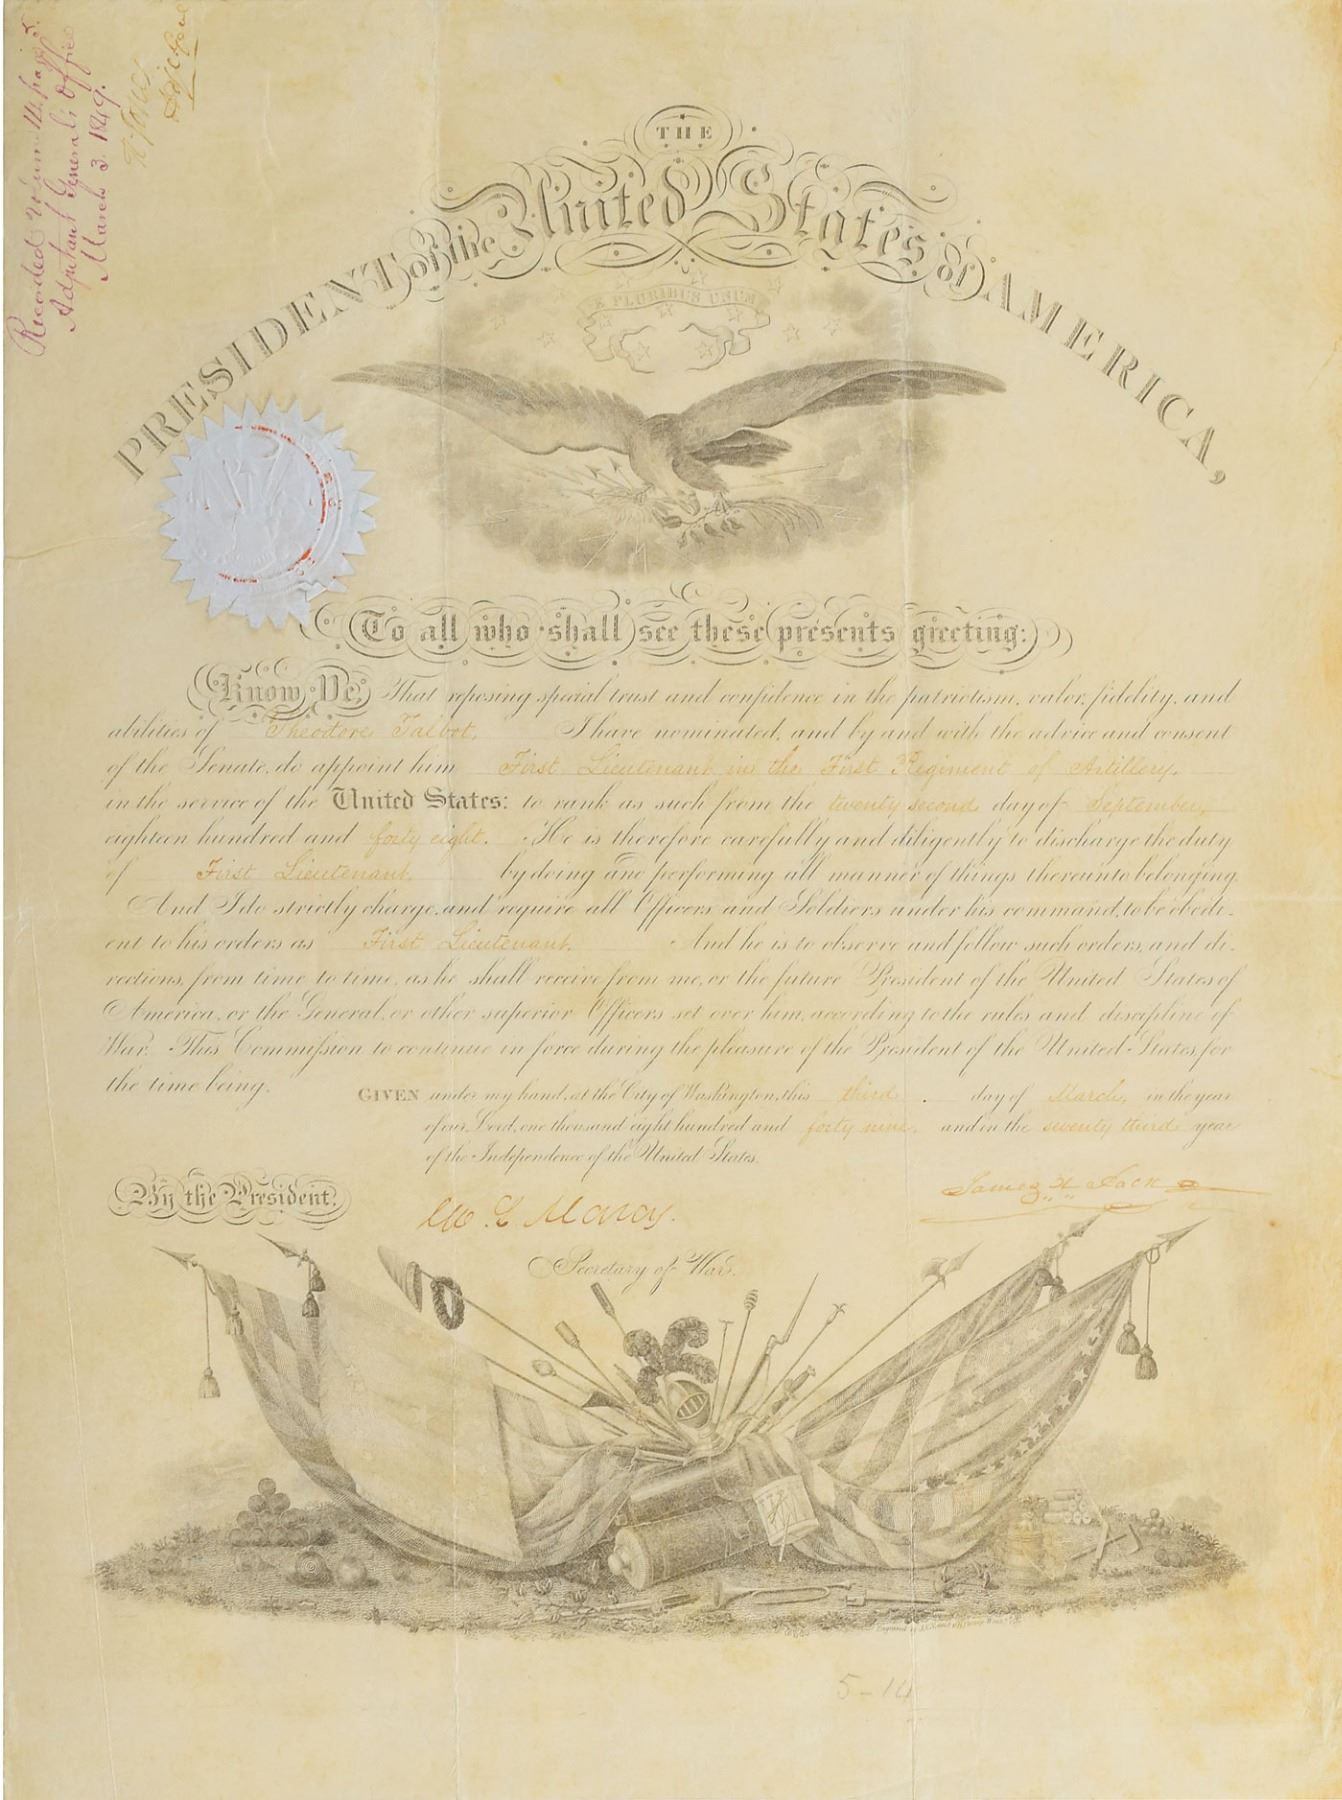 Recorded Volum 14, page 5.
Adjutant Generals Office
March 3. 1849.
THE
PRESIDENT of the United States of AMERICA,
E PLURIBUS UNUM
To all who shall see these presents greeting:
Know Ye, That reposing special trust and confidence in the patriotism, valor, fidelity, and
abilities of Theodore Talbot, I have nominated, and by and with the advice and consent
of the Senate, do appoint him First Lieutenant in the First Regiment of Artillery,
in the service of the United States: to rank as such from the twenty second day of September,
eighteen hundred and forty eight. He is therefore carefully and diligently to discharge the duty
of First Lieutenant, by doing and performing all manner of things thereunto belonging.
And I do strictly charge, and require all Officers and Soldiers under his command, to be obedi-
ent to his orders as First Lieutenant. And he is to observe and follow such orders, and di-
rections, from time to time, as he shall receive from me, or the future President of the United States of
America, or the General, or other superior Officers set over him, according to the rules and discipline of
War. This Commission to continue in force during the pleasure of the President of the United States, for
the time being.
GIVEN under my hand, at the City of Washington, this third day of March, in the year
of our Lord, one thousand eight hundred and forty nine, and in the seventy third year
of the Independence of the United States.
By the President.
James K Polk
W. L. Marcy.
Secretary of War.
5-14